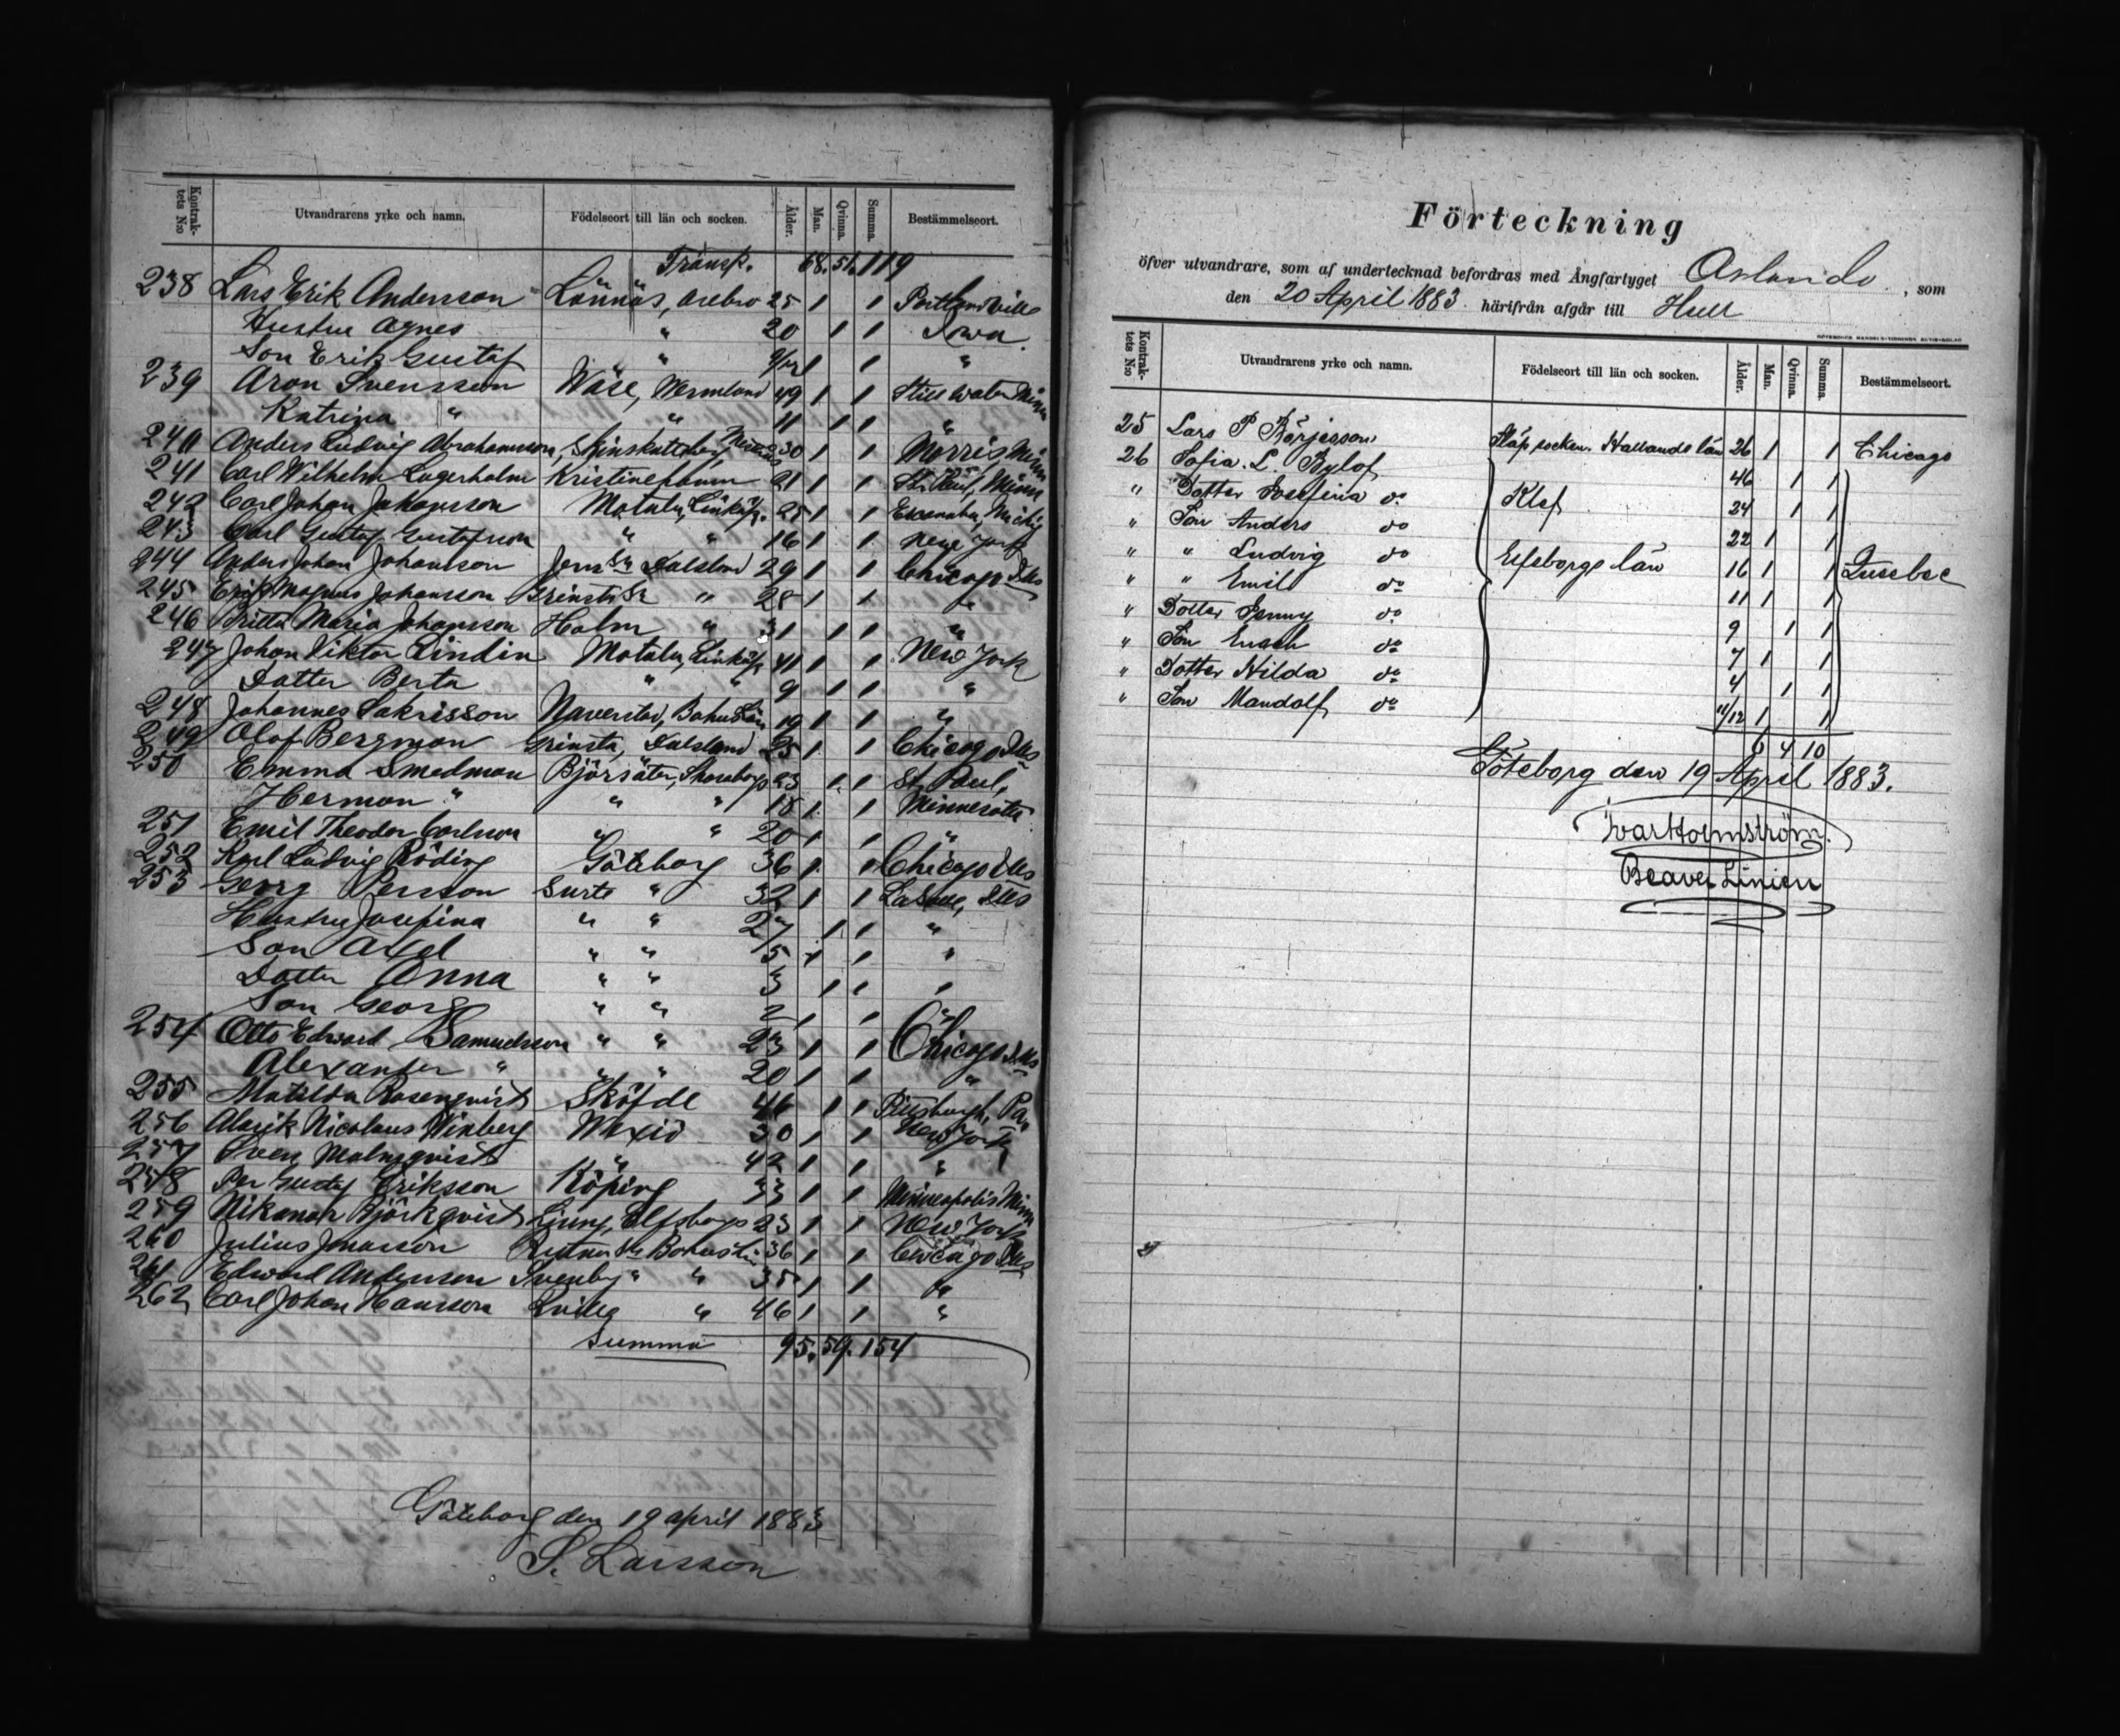 Kontrak-tets N:o Utvandrarens yrke och namn. Födelseort till län och socken. Ålder. Man. Qvinna. Summa. Bestämmelseort.
Transp. 68. 51. 119
238 Lars Erik Andersson Lännäs, Örebro 25 1 1 Portlandville
Hustru Agnes " 20 1 1 Iowa.
Son Erik Gustaf " 9/12 1 1 "
239 Aron Svensson Wäse, Wermland 49 1 1 Stillwater Minn
Katrina " " 11 1 1 "
240 Anders Ludvig Abrahamsson, Skinskatteberg 30 1 1 Morris Minn
241 Carl Wilhelm Lagerholm Kristinehamn 21 1 1 St. Paul, Minn
242 Carl Johan Johansson Motala, Linköp. 25 1 1 Escanaba, Michig
243 Carl Gustaf Gustafsson " " 16 1 1 New York
244 Anders Johan Johansson Dalsland 29 1 1 Chicago Ills
245 Erik Magnus Johansson Grinsta Sn " 28 1 1 "
246 Britta Maria Johansson Holm " 31 1 1 "
247 Johan Viktor Lindin Motala, Linköp. 41 1 1 New York
Dotter Berta " " 9 1 1 "
248 Johannes Sakrisson Naverstad, Bohuslän 19 1 1 "
249 Olof Bergman Grinsta, Dalsland 25 1 1 Chicago Ills
250 Emma Smedman Björsäter, Skaraborgs 23 1 1 St. Paul,
Herman " " " 18 1 1 Minnesota
251 Emil Theodor Carlsson " " 20 1 1 "
252 Karl Ludvig Röding Göteborg 36 1 1 Chicago Ills
253 Georg Persson Surte " 32 1 1 LaSalle, Ills
Hustru Josefina " " 27 1 1 "
Son Axel " " 5 1 1 "
Dotter Anna " " 3 1 1 "
Son Georg " " 2 1 1 "
254 Otto Edward Samuelsson " " 23 1 1 Chicago Ills
Alexander " " " 20 1 1 "
255 Matilda Rosenqvist Sköfde 46 1 1 Pittsburgh, Pa
256 Alarik Nicolaus Winberg Wexiö 30 1 1 New York
257 Sven Malmqvist " 42 1 1 "
258 Per Gustaf Eriksson Köping 33 1 1 Minneapolis Minn
259 Nikanor Björkqvist Ljung, Elfsborgs 23 1 1 New York
260 Julius Jonasson Bohuslän 36 1 1 Chicago Ills
261 Edward Andersson Svenby " " 35 1 1 "
262 Carl Johan Hansson Qville " 46 1 1 "
Summa 95. 59. 154
Göteborg den 19 april 1883
S. Larsson
Förteckning
öfver utvandrare, som af undertecknad befordras med Ångfartyget Orlando, som
den 20 April 1883. härifrån afgår till Hull
GÖTEBORGS HANDELS-TIDNINGS AKTIE-BOLAG
Kontrak-tets N:o Utvandrarens yrke och namn. Födelseort till län och socken. Ålder. Man. Qvinna. Summa. Bestämmelseort.
25 Lars P Börjesson Släp socken. Hallands län 26 1 1 Chicago
26 Sofia. L. Bylof 46 1 1
" Dotter Josefina do Klef 24 1 1
" Son Anders do 22 1 1
" " Ludvig do Elfsborgs län 16 1 1 Quebec
" " Emil do 11 1 1
" Dotter Jenny do 9 1 1
" Son Enoch do 7 1 1
" Dotter Hilda do 4 1 1
" Son Mandolf do 11/12 1 1
6 4 10
Göteborg den 19 April 1883.
Ivar Holmström.
Beaver Linien